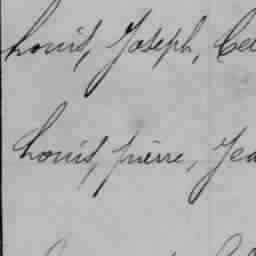 Louis, Joseph, Cel
Louis, pierre, Jea